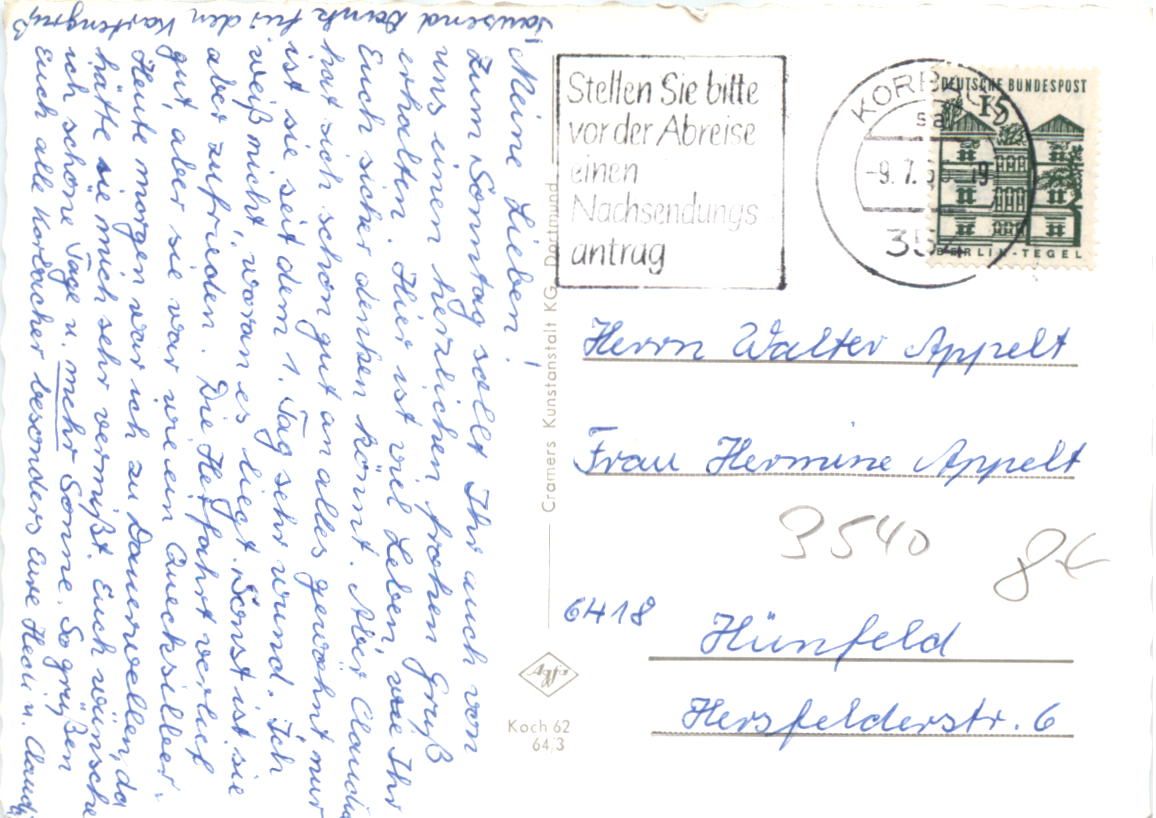 Tausend Dank für den Kartengruß
Meine Lieben!
Zum Sonntag sollt Ihr auch von
uns einen herzlichen frohen Gruß
erhalten. Hier ist viel Leben, wie Ihr
Euch sicher denken könnt. Aber Claudia
hat sich schon gut an alles gewöhnt nur
ist sie seit dem 1. Tag sehr wund. Ich
weiß nicht, woran es liegt. Sonst ist sie
aber zufrieden. Die Herfahrt verlief
gut, aber sie war wie ein Quecksilber.
Heute morgen war ich zu Dauerwellen, da
hätte sie mich sehr vermißt. Euch wünsche
ich schöne Tage u. mehr Sonne. So grüßen
Euch alle Korbacher besonders Eure Hedi u. Claudia
Cramers Kunstanstalt KG, Dortmund
Agfa
Koch 62
64/3
Stellen Sie bitte
vor der Abreise
einen
Nachsendungs
antrag
KORBACH
-9.7. -19
354
DEUTSCHE BUNDESPOST
15
BERLIN-TEGEL
Herrn Walter Appelt
Frau Hermine Appelt
3540
8€
6418 Hünfeld
Hersfelderstr. 6